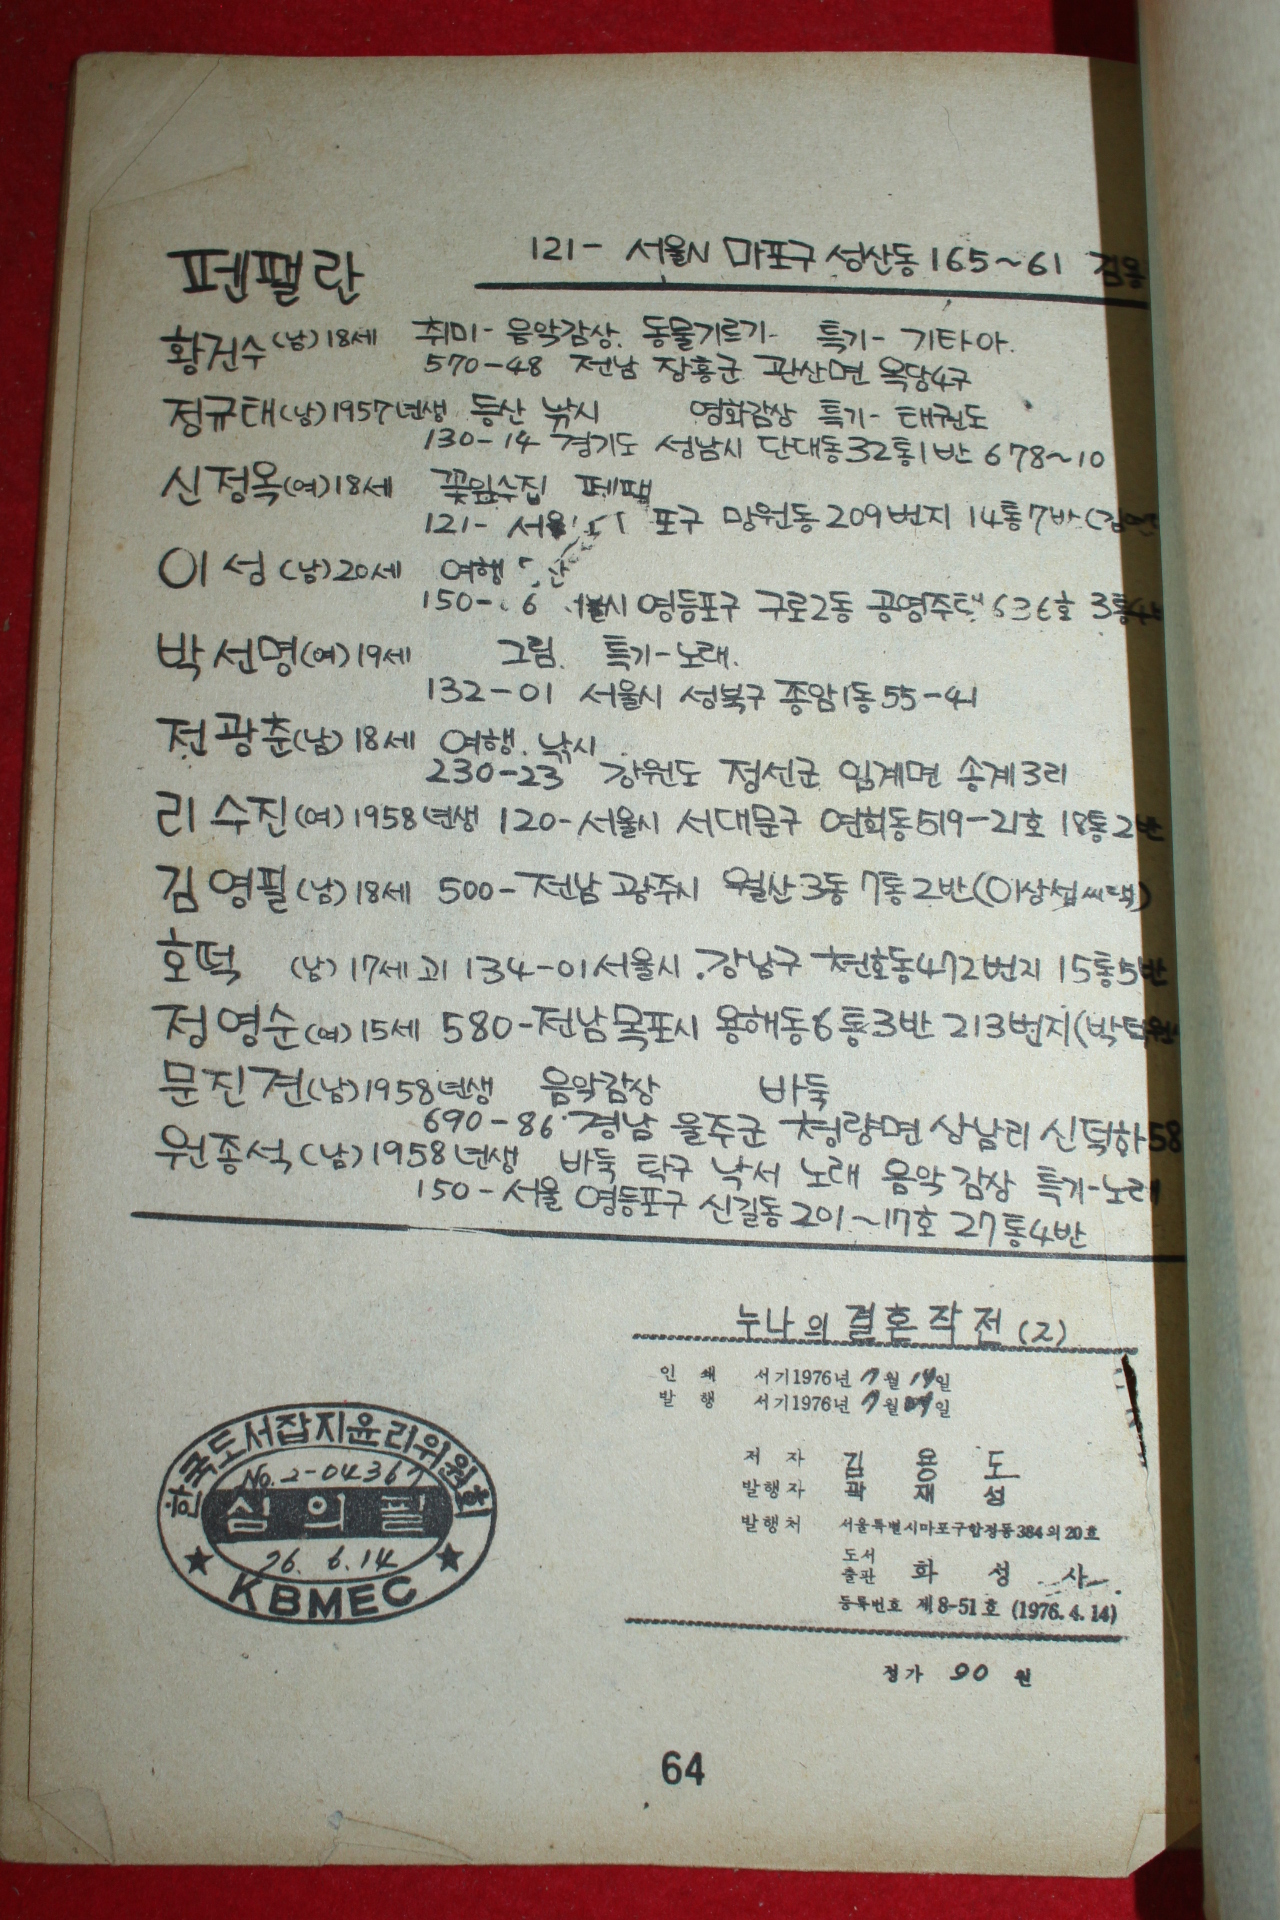 펜팰란
121- 서울시 마포구 성산동 165~61 김용
황건수(남)18세 취미- 음악감상. 동물기르기. 특기- 기타아.
570-48 전남 장흥군 관산면 옥당4구
정규태(남)1957년생 등산 낚시 영화감상 특기- 태권도
130-14 경기도 성남시 단대동32통1반 678~10
신정옥(여)18세 꽃잎수집 펜팰
121- 서울 포구 망원동 209번지 14통7반
이성(남)20세 여행
150- 6 시 영등포구 구로2동 공영주택 636호 3통4
박선명(여)19세 그림. 특기-노래.
132-01 서울시 성북구 종암1동 55-41
전광춘(남)18세 여행. 낚시
230-23 강원도 정선군 임계면 송계3리
리수진(여)1958년생 120-서울시 서대문구 연희동519-21호 18통2반
김영필(남)18세 500-전남 광주시 월산3동 7통2반(이상섭씨댁)
호떡 (남)17세고1 134-01 서울시 강남구 천호동472번지 15통5반
정영순(여)15세 580-전남목포시 용해동6통3반 213번지(박
문진견(남)1958년생 음악감상 바둑
690-86 경남 울주군 청량면 상남리 신덕하58
원종석(남)1958년생 바둑 탁구 낙서 노래 음악감상 특기-노래
150-서울 영등포구 신길동 201~17호 27통4반
누나의 결혼작전 (2)
인쇄 서기1976년 7월 14일
발행 서기1976년 7월 일
저자 김용도
발행자 곽재성
발행처 서울특별시마포구합정동384의20호
도서출판 화성사
등록번호 제8-51호 (1976.4.14)
정가 90 원
한국도서잡지윤리위원회
No.2-04367
심의필
76. 6.14
★ KBMEC ★
64